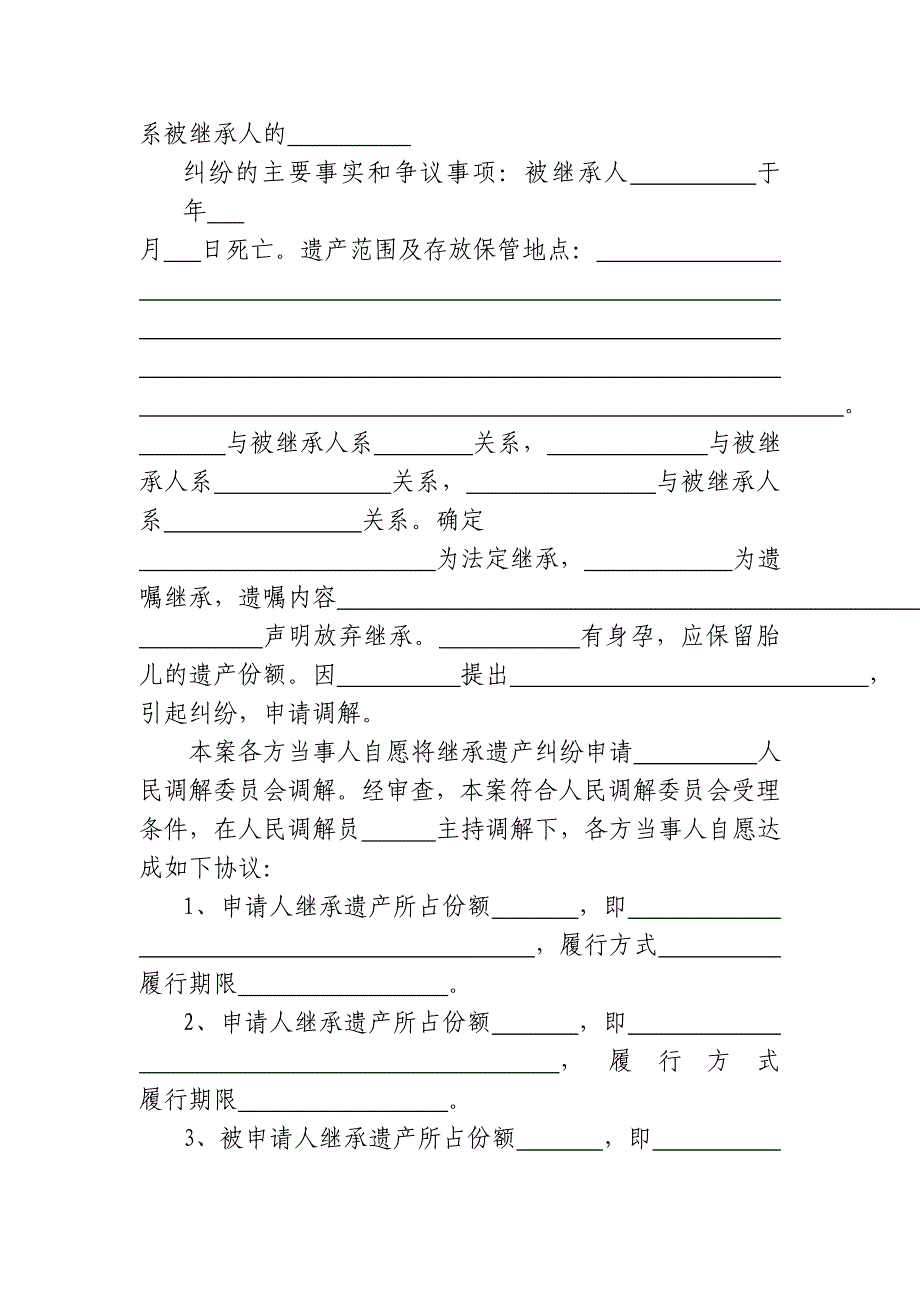 系被继承人的__________
纠纷的主要事实和争议事项：被继承人__________于
年___
月___日死亡。遗产范围及存放保管地点：_______________
____________________________________________________
____________________________________________________
____________________________________________________
_________________________________________________________。
_______与被继承人系________关系，_____________与被继
承人系______________关系，_______________与被继承人
系________________关系。确定
________________________为法定继承，____________为遗
嘱继承，遗嘱内容_______________________________________________
__________声明放弃继承。___________有身孕，应保留胎
儿的遗产份额。因__________提出_____________________________，
引起纠纷，申请调解。
本案各方当事人自愿将继承遗产纠纷申请__________人
民调解委员会调解。经审查，本案符合人民调解委员会受理
条件，在人民调解员______主持调解下，各方当事人自愿达
成如下协议：
1、申请人继承遗产所占份额_______，即____________
________________________________，履行方式__________
履行期限_________________。
2、申请人继承遗产所占份额_______，即____________
__________________________________，履行方式
履行期限_________________。
3、被申请人继承遗产所占份额_______，即__________